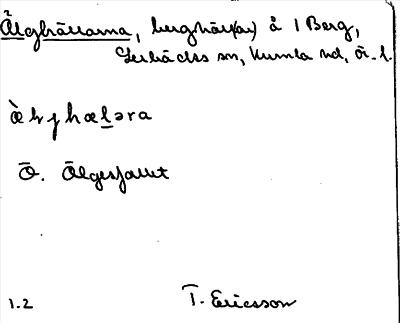 Älghällarna, berghäll(ar) å 1 Berg,
Lerbäcks sn, Kumla hd, Ör. l.
hæləra
Ö. Älgesfallet
1.2 T. Ericsson